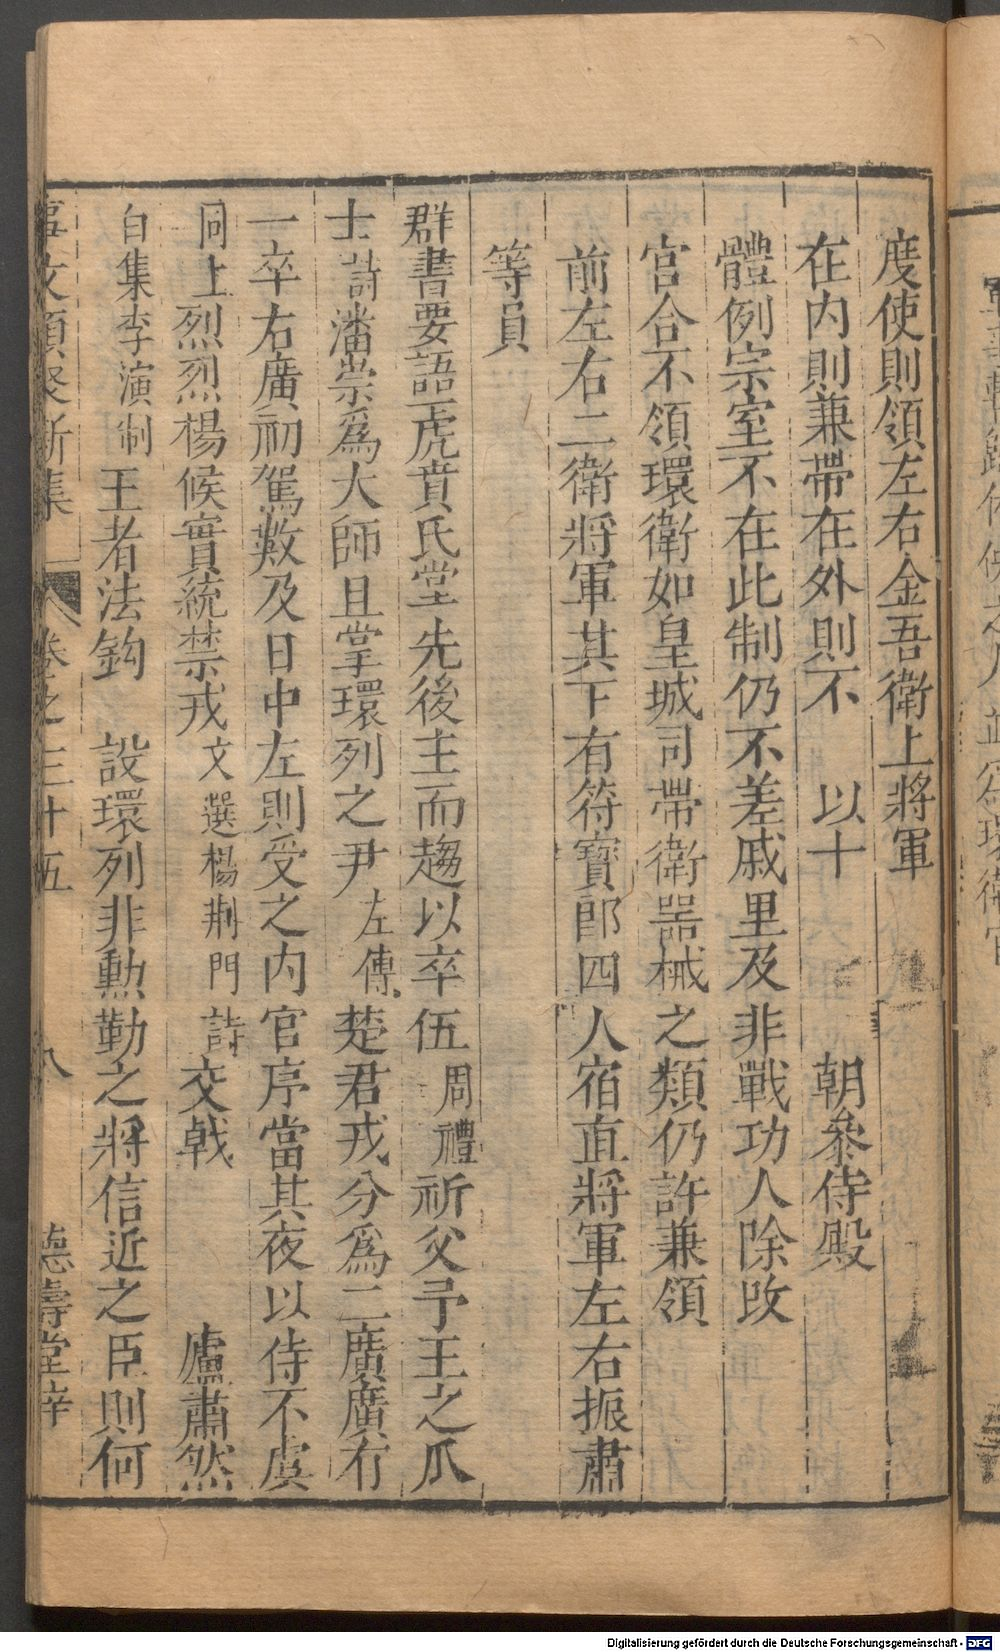 度使則領左右金吾衛上將軍
在内則兼帶在外則不 以十 朝參侍殿
體例宗室不在此制仍不差戚里及非戰功人除改
官合不領環衛如皇城司帶衛器械之類仍許兼領
前左右二衛將軍其下有符寶郎四人宿直將軍左右振肅
等員
群書要語虎賁氏堂先後主而趨以卒伍周禮祈父予王之爪
士詩潘崇爲大師且掌環列之尹左傳楚君戎分爲二廣廣有
一卒右廣初駕數及日中左則受之内官序當其夜以侍不虞
同上烈烈楊候實統禁戎文選楊荆門詩交戟 廬肅然
白集李演制王者法鈎 設環列非勲勤之將信近之臣則何
事文類聚新集 卷之三十五 八 德壽堂梓
Digitalisierung gefördert durch die Deutsche Forschungsgemeinschaft - DFG